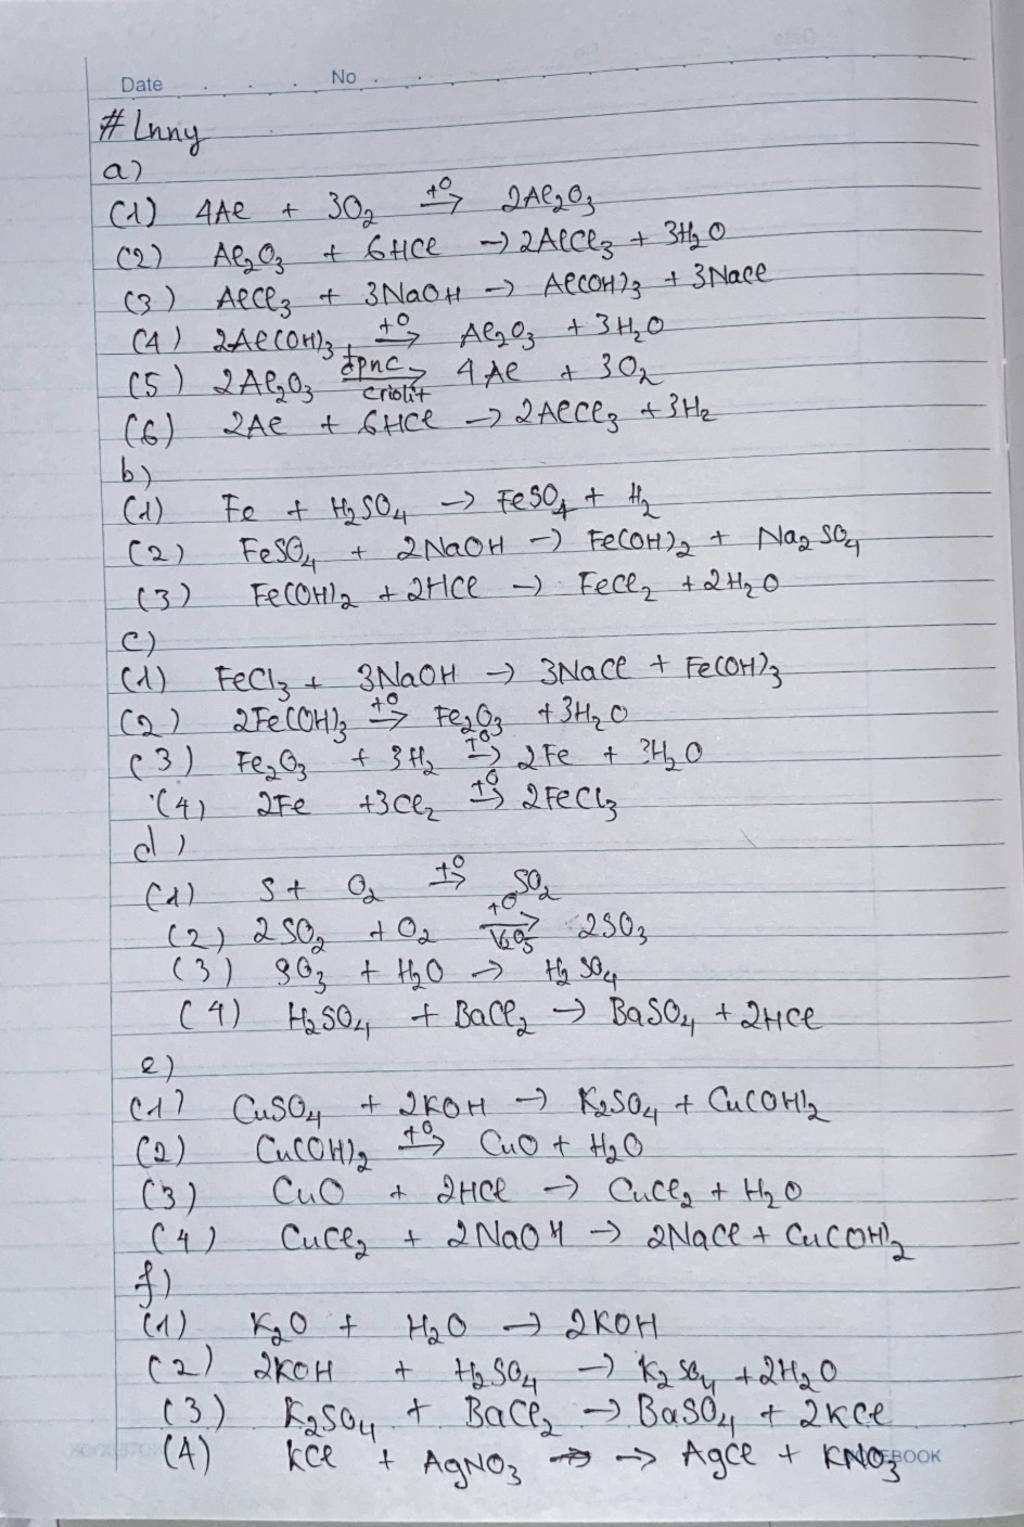 Date No
#Lnny
a)
(1) 4Al + 3O₂ →(t⁰) 2Al₂O₃
(2) Al₂O₃ + 6HCl → 2AlCl₃ + 3H₂O
(3) AlCl₃ + 3NaOH → Al(OH)₃ + 3NaCl
(4) 2Al(OH)₃ →(t⁰) Al₂O₃ + 3H₂O
(5) 2Al₂O₃ →(đpnc, criolit) 4Al + 3O₂
(6) 2Al + 6HCl → 2AlCl₃ + 3H₂
b)
(1) Fe + H₂SO₄ → FeSO₄ + H₂
(2) FeSO₄ + 2NaOH → Fe(OH)₂ + Na₂SO₄
(3) Fe(OH)₂ + 2HCl → FeCl₂ + 2H₂O
c)
(1) FeCl₃ + 3NaOH → 3NaCl + Fe(OH)₃
(2) 2Fe(OH)₃ →(t⁰) Fe₂O₃ + 3H₂O
(3) Fe₂O₃ + 3H₂ →(t⁰) 2Fe + 3H₂O
(4) 2Fe + 3Cl₂ →(t⁰) 2FeCl₃
d)
(1) S + O₂ →(t⁰) SO₂
(2) 2SO₂ + O₂ →(t⁰, V₂O₅) 2SO₃
(3) SO₃ + H₂O → H₂SO₄
(4) H₂SO₄ + BaCl₂ → BaSO₄ + 2HCl
e)
(1) CuSO₄ + 2KOH → K₂SO₄ + Cu(OH)₂
(2) Cu(OH)₂ →(t⁰) CuO + H₂O
(3) CuO + 2HCl → CuCl₂ + H₂O
(4) CuCl₂ + 2NaOH → 2NaCl + Cu(OH)₂
f)
(1) K₂O + H₂O → 2KOH
(2) 2KOH + H₂SO₄ → K₂SO₄ + 2H₂O
(3) K₂SO₄ + BaCl₂ → BaSO₄ + 2KCl
(4) KCl + AgNO₃ → AgCl + KNO₃